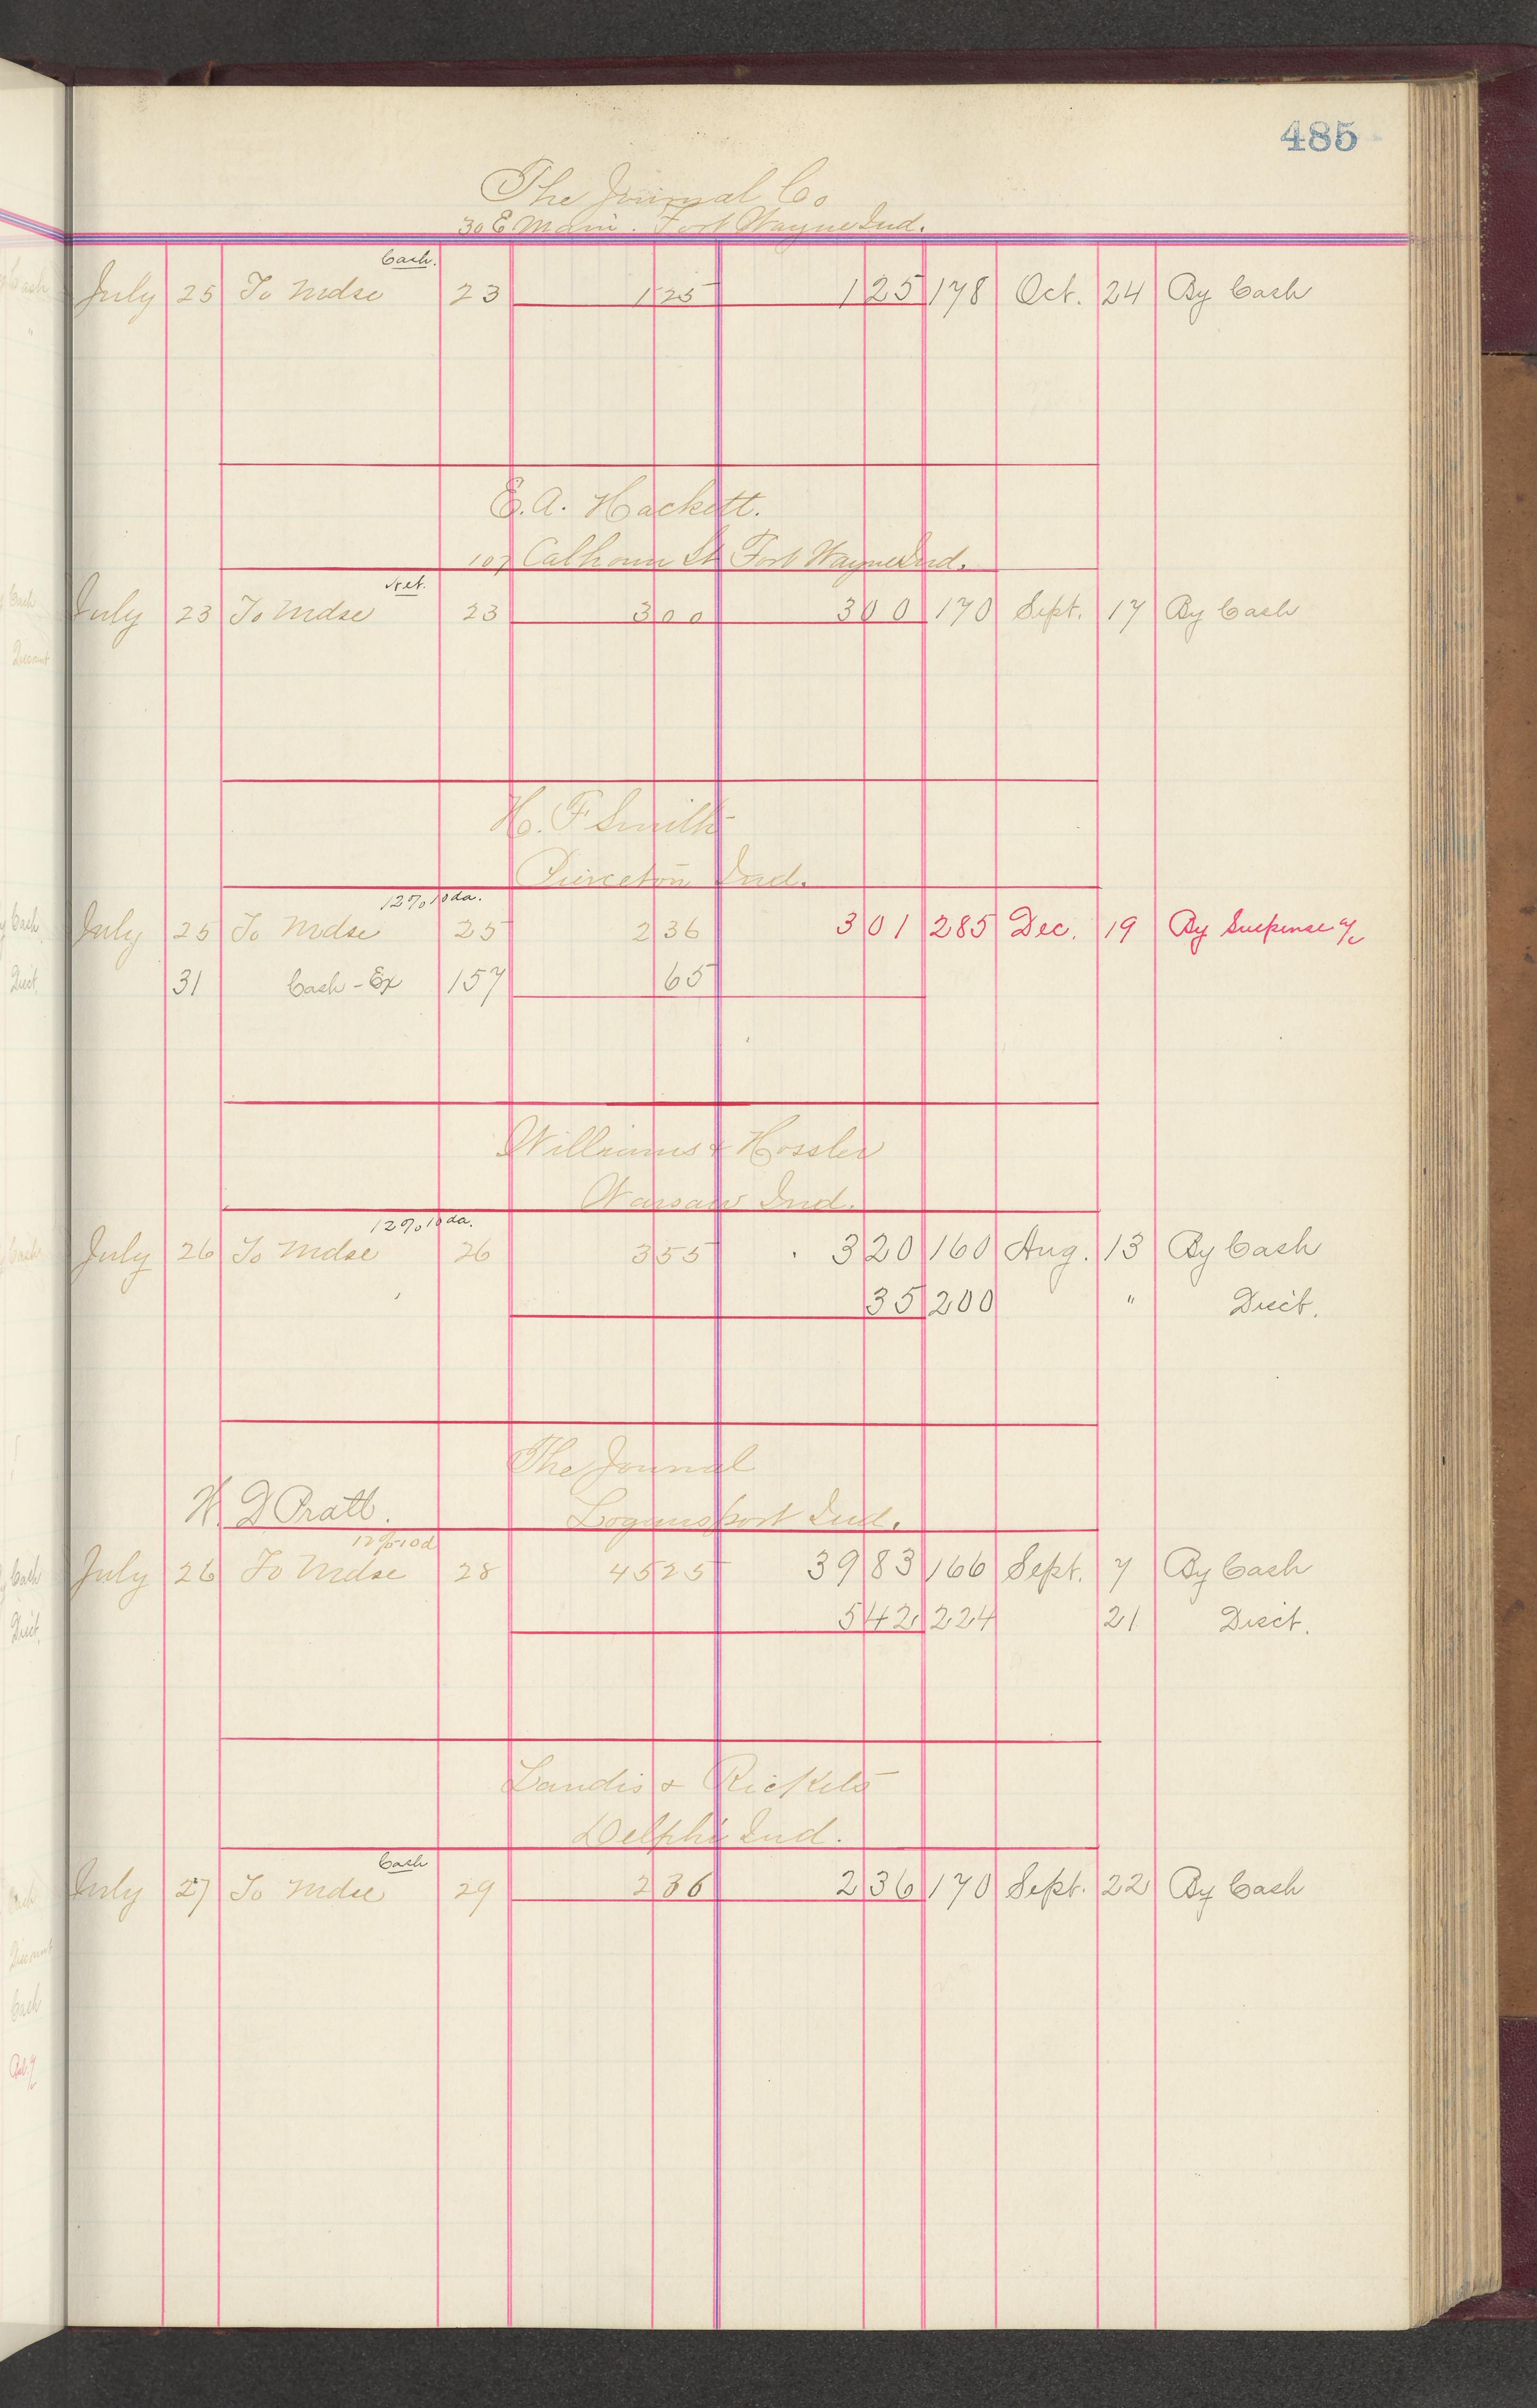 485
The Journal Co
30 E Main. Fort Wayne Ind.
Cash.
July 25 To Mdse 23 1 25 1 25 178 Oct. 24 By Cash
E. A. Hackett.
107 Calhoun St Fort Wayne Ind.
Net.
July 23 To Mdse 23 3 00 3 00 170 Sept. 17 By Cash
H. F Smith
Pierceton Ind.
12% 10 da.
July 25 To Mdse 25 2 36 3 01 285 Dec. 19 By Suspense a/c
31 Cash - Ex 157 65
Williams & Hossler
Warsaw Ind.
12% 10 da.
July 26 To Mdse 26 3 55 3 20 160 Aug. 13 By Cash
35 200 " Disct.
The Journal
W. D Pratt. Logansport Ind.
12% 10 d
July 26 To Mdse 28 45 25 39 83 166 Sept. 7 By Cash
5 42 224 21 Disct.
Landis & Rickets
Delphi Ind.
Cash
July 27 To Mdse 29 2 36 2 36 170 Sept. 22 By Cash